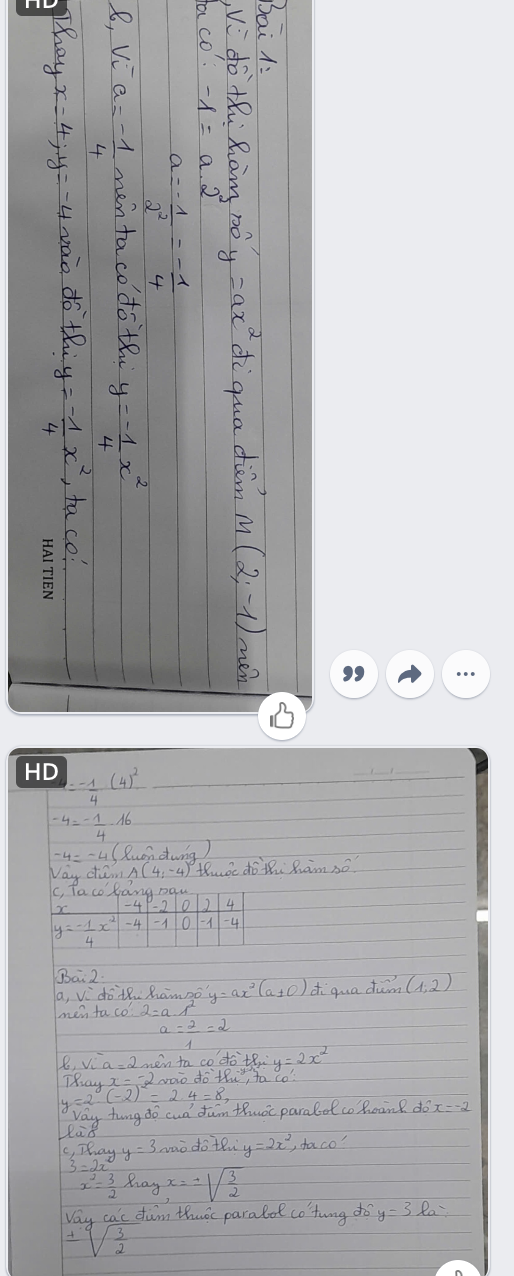 HD
Bài 1:
, Vì đồ thị hàm số y = ax² đi qua điểm M (2; -1) nên
ta có: -1 = a.2²
a = -1/2² = -1/4
b, Vì a = -1/4 nên ta có đồ thị y = -1/4 x²
Thay x = 4; y = -4 vào đồ thị y = -1/4 x², ta có:
HẢI TIẾN
HD
-4 = -1/4 (4)²
-4 = -1/4 . 16
-4 = -4 (luôn đúng)
Vậy điểm A (4; -4) thuộc đồ thị hàm số.
c, Ta có bảng sau
x -4 -2 0 2 4
y = -1/4 x² -4 -1 0 -1 -4
Bài 2.
a, Vì đồ thị hàm số y = ax² (a ≠ 0) đi qua điểm (1; 2)
nên ta có: 2 = a.1²
a = 2/1 = 2
b, Vì a = 2 nên ta có đồ thị y = 2x²
Thay x = -2 vào đồ thị, ta có:
y = 2 (-2)² = 2.4 = 8,
Vậy tung độ của điểm thuộc parabol có hoành độ x = -2
là 8
c, Thay y = 3 vào đồ thị y = 2x², ta có:
3 = 2x²
x² = 3/2 hay x = ±√3/2
Vậy các điểm thuộc parabol có tung độ y = 3 là:
±√3/2